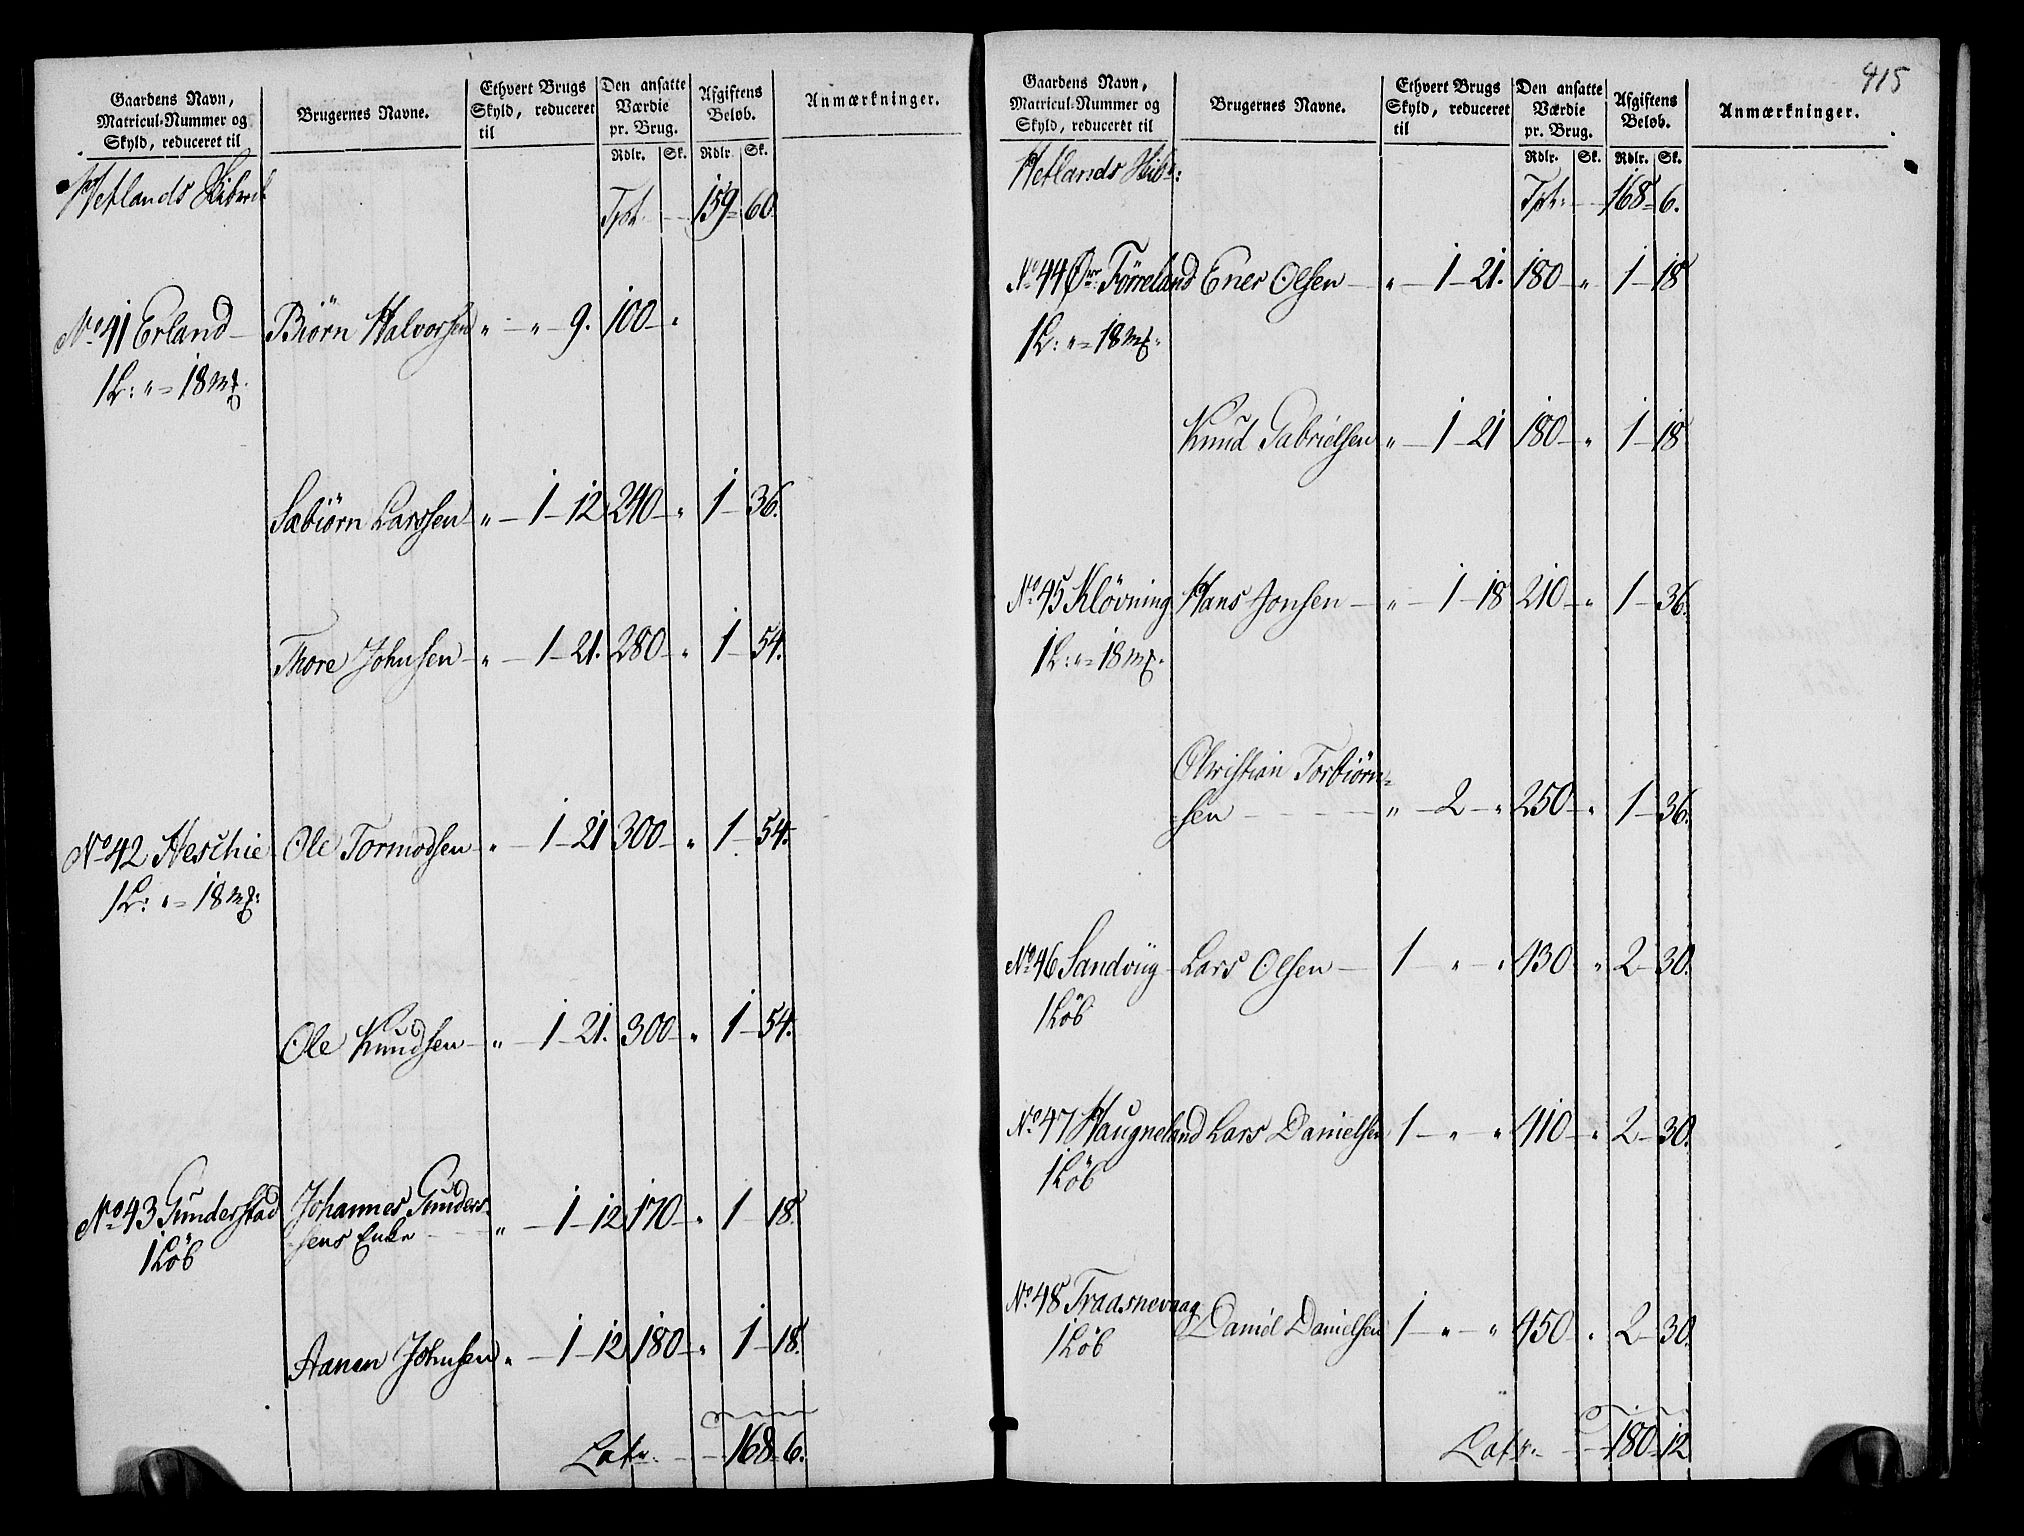 Gaardens Navn, Matricul-Nummer og Skyld, reduceret til | Brugernes Navne. | Ethvert Brugs Skyld, reduceret til | Den ansatte Værdie pr. Brug. | Afgiftens Beløb. | Anmærkninger.
Rdlr. | Sk. | Rdlr. | Sk.
Hetlands Skibred
Tpt. 159 60.
No 41 Erland Biørn Halvorsen " " 9. 100 "
1 L: " = 18 mk.
Sæbiørn Larssen " 1 12 240 " 1 36.
Thore Johnsen " 1 21. 280 " 1 54.
No 42 Heschie Ole Tormodsen " 1 21 300 " 1 54.
1 L: " = 18 mk:
Ole Knudsen " 1 21. 300 " 1 54.
No 43 Gunderstad Johannes Gunders-
1 Löb sens Enke " 1 12 170 " 1 18.
Aanen Johnsen " 1 12 180 " 1 18.
Latr. 168 6.
415
Gaardens Navn, Matricul-Nummer og Skyld, reduceret til | Brugernes Navne. | Ethvert Brugs Skyld, reduceret til | Den ansatte Værdie pr. Brug. | Afgiftens Beløb. | Anmærkninger.
Rdlr. | Sk. | Rdlr. | Sk.
Hetlands Skibr:
Tptr. 168 6.
No 44 ØrFörreland Ener Olsen " 1 21. 180 " 1 18
1 L: " = 18 mk.
Knud Gabrielsen " 1 21 180 " 1 18
No 45 Klövning Hans Jonsen " 1 18 210 " 1 36.
1 L: " = 18 mk.
Christian Torbiörn-
sen " 2 " 250 " 1 36.
No 46 Sandviig Lars Olsen 1 " " 430 " 2 30.
1 Löb
No 47 Haugneland Lars Danielsen 1 " " 410 " 2 30.
1 Löb
No 48 Traasnevaag
1 Löb Daniel Danielsen 1 " " 450 " 2 30.
Latr. 180 12